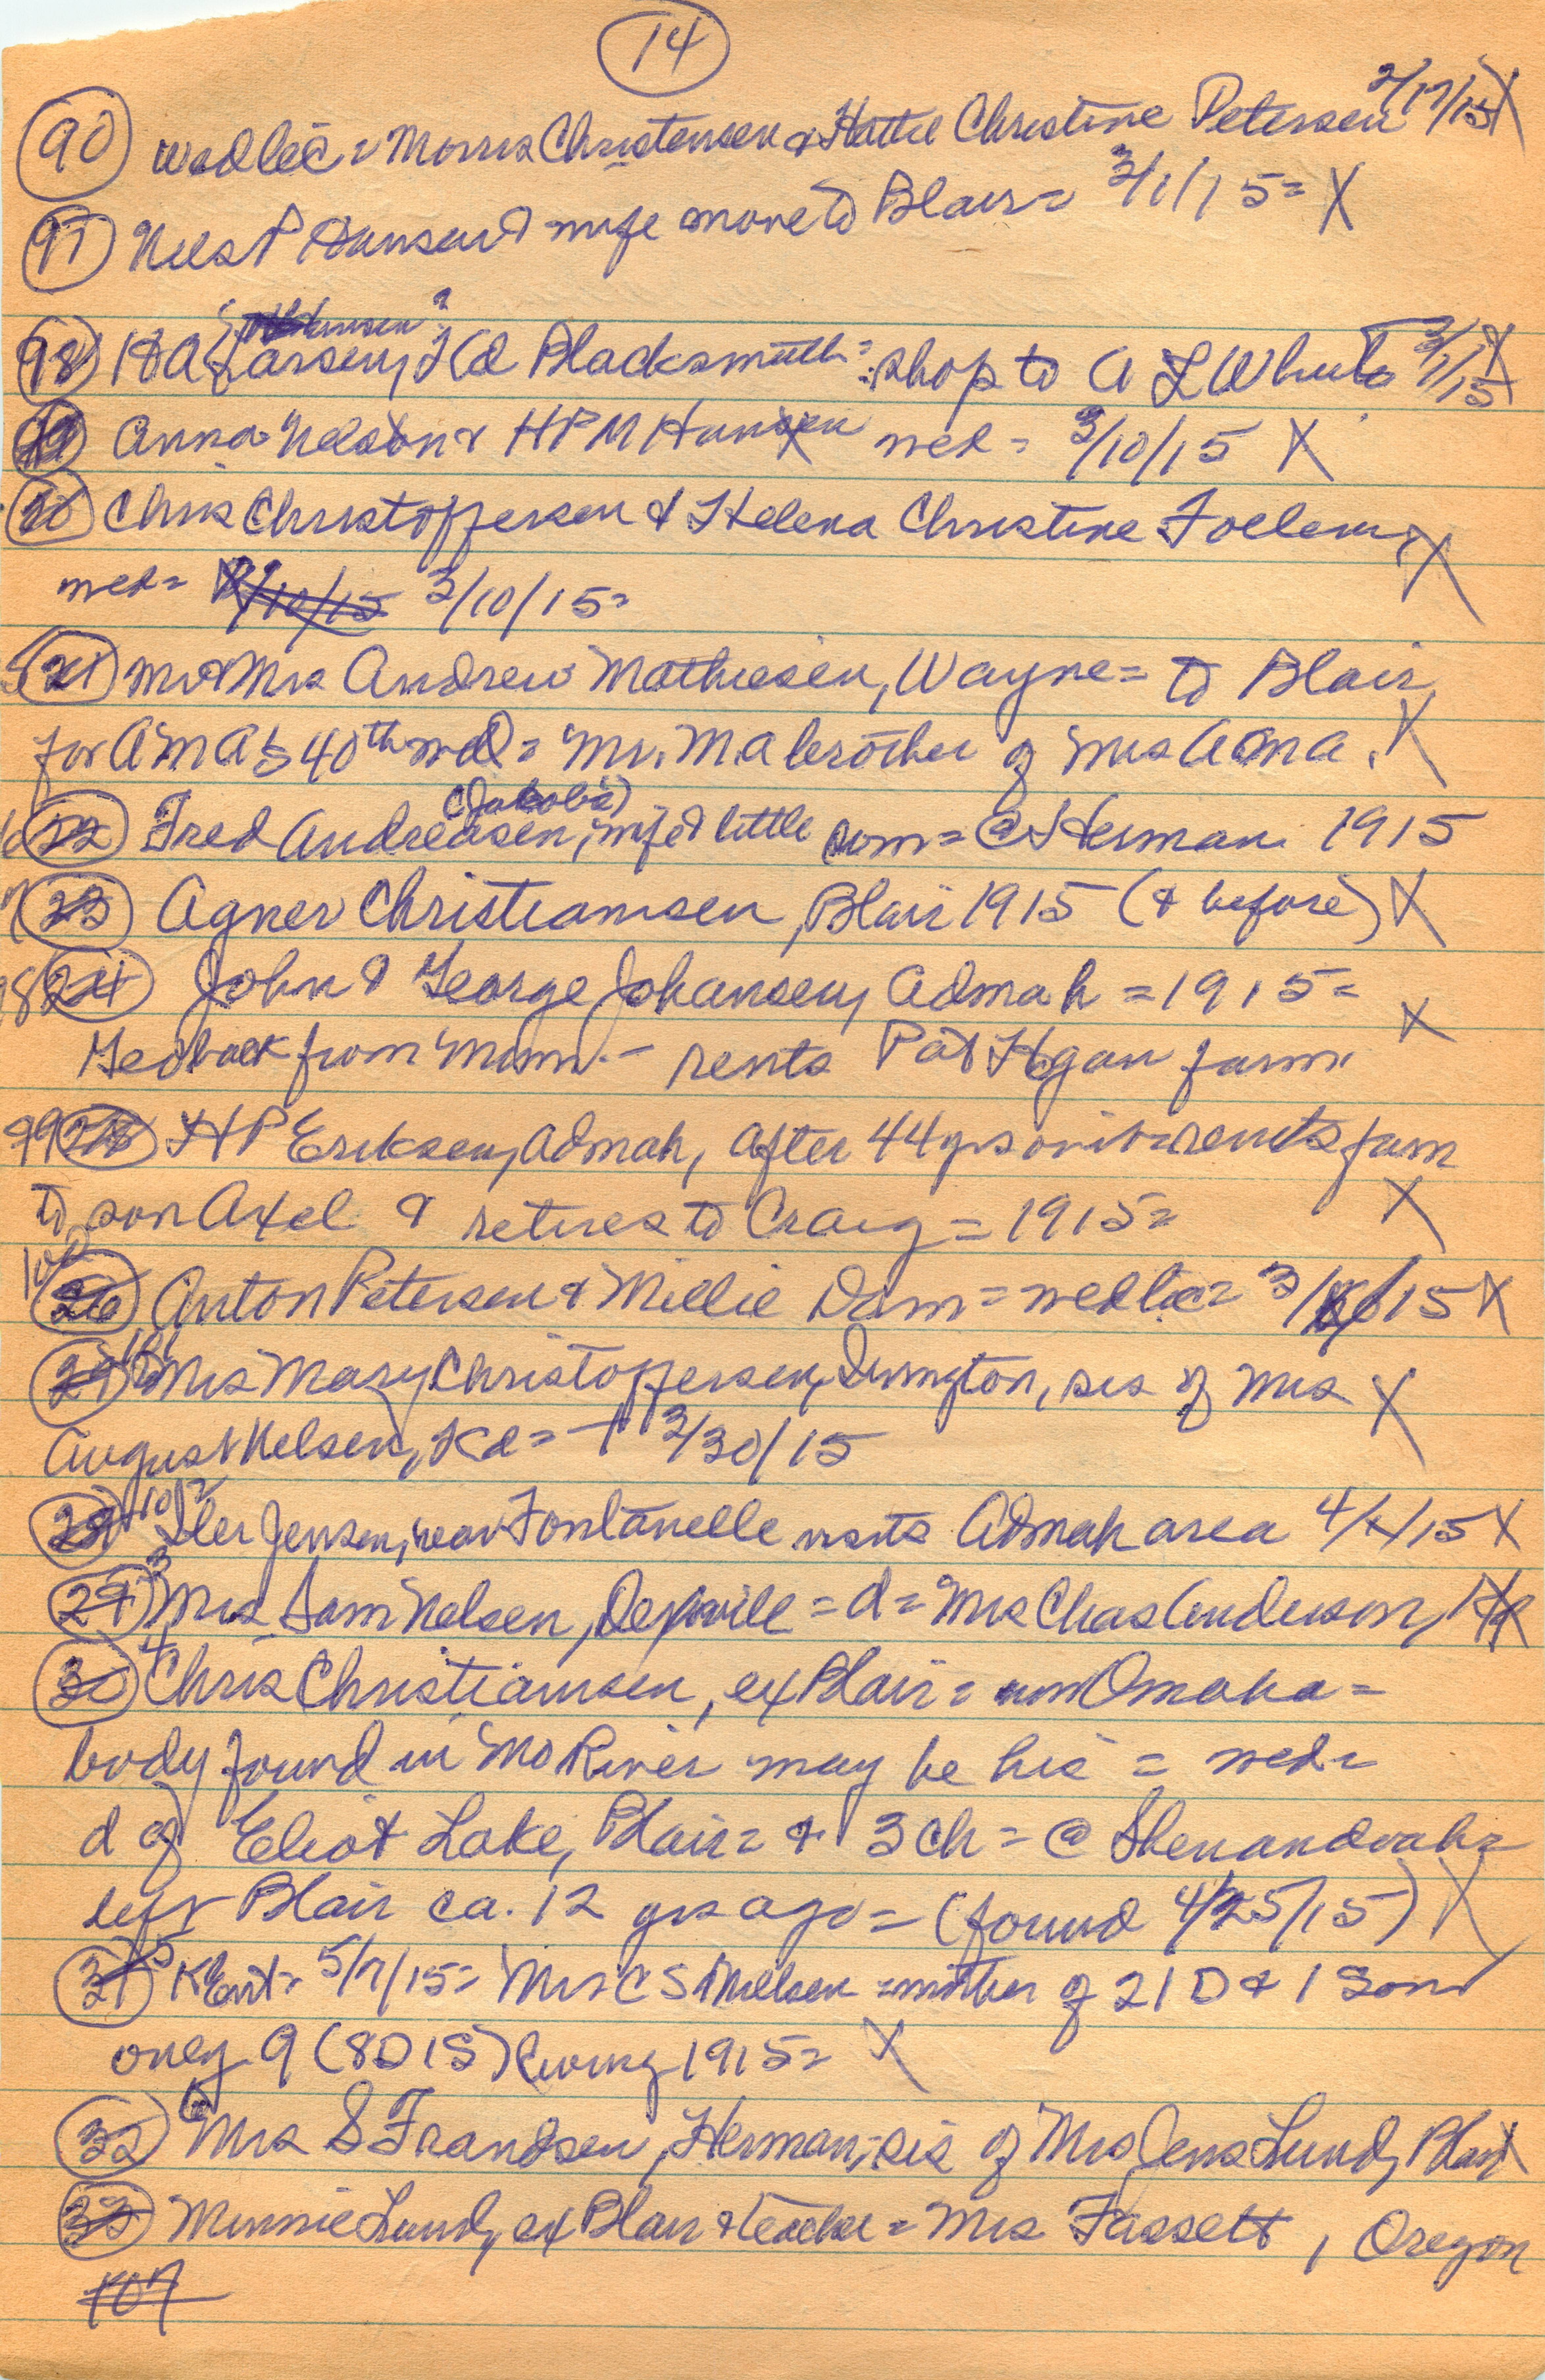 14
90 wed lic = Morris Christensen & Hattie Christine Petersen 2/17/15 X
97 Nels P Hansen & wife move to Blair = 3/1/15 = X
98 HA Larsen, Kd Blacksmith = shop to A L White 3/1/15 X
Anna Nelson & HPM Hansen wed = 3/10/15 X
20 Chris Christoffersen & Helena Christine X
wed = 3/10/15 =
21 Mr & Mrs Andrew Mathiesen, Wayne = to Blair
for AMA's 40th wed = Mr. MA brother of Mrs AMA. X
(Jakobs)
22 Fred Andreasen, wife & little son = @ Herman 1915
23 Agner Christiansen, Blair 1915 (& before) X
98 24 John & George Johansen, Admah = 1915 =
Geo back from Minn. - rents Pat Hgan farm X
99 25 HP Eriksen, Admah, after 44 yrs on it = rents farm
to son Axel & retires to Craig = 1915 = X
100
26 Anton Petersen & Millie Dam = wed lic = 3/ /15 X
101
27 Mrs Mary Christoffersen, Irvington, sis of Mrs X
August Nelsen, Kd = + 3/30/15
102
28 Iler Jensen, near Fontanelle visits Admah area 4/x/15 X
3
29 Mrs Sam Nelsen, = d = Mrs Chas Anderson, X
4
30 Chris Christiansen, ex Blair = now Omaha =
body found in Mo River may be his = wed =
d of Eliot Lake, Blair = & 3 ch = @ Shenandoah =
left Blair ca. 12 yrs ago = (found 4/25/15) X
5
31 5/7/15 = Mrs C S Nielsen = mother of 21 D & 1 Son
only 9 (8D 1S) living 1915 = X
6
32 Mrs S Frandsen, Herman, sis of Mrs Jens Lund, Blair X
33 Minnie Lund, ex Blair & teacher = Mrs Fassett, Oregon
107